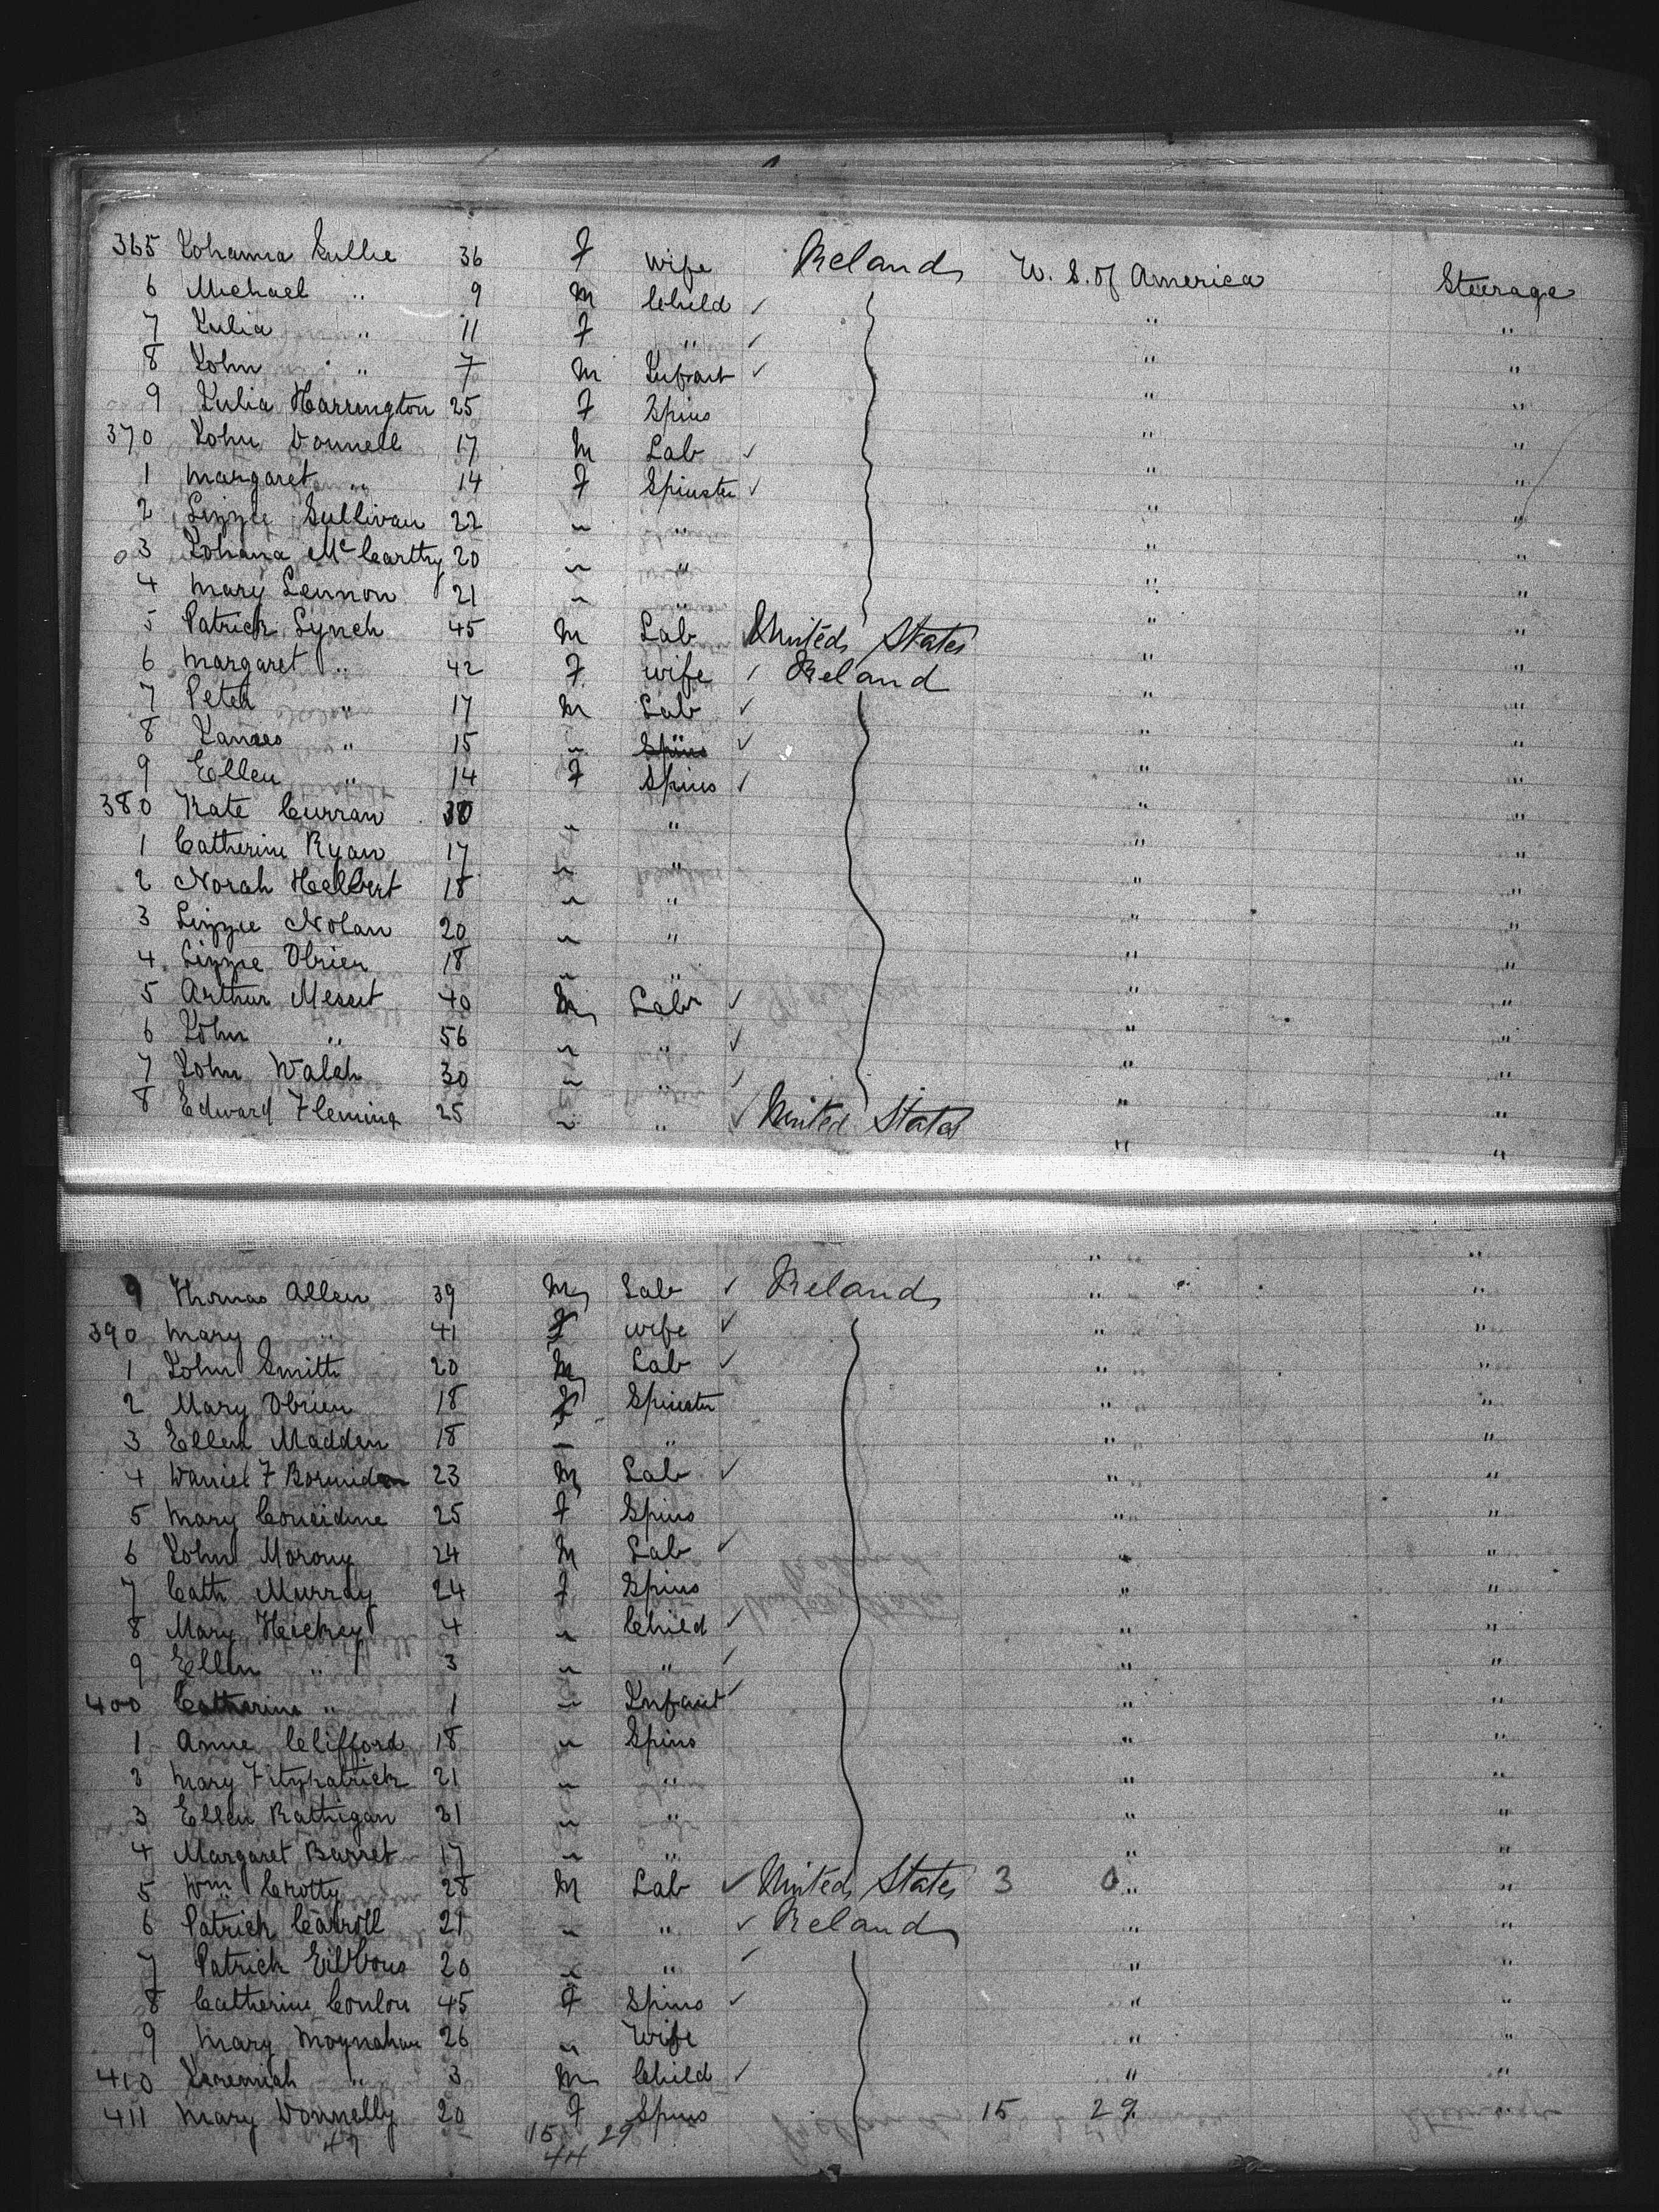 365 Johanna Sullie 36 F Wife Ireland U. S. of America Steerage
6 Michael " 9 M Child ✓ " "
7 Julia " 11 F " ✓ " "
8 John " 7 M Infant ✓ " "
9 Julia Harrington 25 F Spins " "
370 John Donnell 17 M Lab ✓ " "
1 Margaret " 14 F Spinster ✓ " "
2 Lizzie Sullivan 22 " " " "
3 Johana McCarthy 20 " " " "
4 Mary Lennon 21 " " " "
5 Patrick Lynch 45 M Lab United States " "
6 Margaret " 42 F Wife ✓ Ireland " "
7 Peter " 17 M Lab ✓ " "
8 James " 15 " " ✓ " "
9 Ellen " 14 F Spins ✓ " "
380 Kate Curran 30 " " " "
1 Catherine Ryan 17 " " " "
2 Norah Helbert 18 " " " "
3 Lizzie Nolan 20 " " " "
4 Lizzie Obrien 18 " " " "
5 Arthur 40 M Labr ✓ " "
6 John " 56 " " ✓ " "
7 John Walsh 30 " " ✓ " "
8 Edward Fleming 25 " " ✓ United States " "
9 Thomas Allen 39 M Lab ✓ Ireland " "
390 Mary " 41 F Wife ✓ " "
1 John Smith 20 M Lab ✓ " "
2 Mary Obrien 18 F Spinster " "
3 Ellen Madden 18 " " " "
4 Daniel F 23 M Lab ✓ " "
5 Mary Concidine 25 F Spins " "
6 John Morony 24 M Lab ✓ " "
7 Cath Murray 24 F Spins " "
8 Mary Hickey 4 " Child ✓ " "
9 Ellen " 3 " " ✓ " "
400 Catherine " 1 " Infant ✓ " "
1 Annie Clifford 18 " Spins " "
3 Mary Fitzpatrick 21 " " " "
3 Ellen Rattigan 21 " " " "
4 Margaret Barret 17 " " " "
5 Wm Crotty 28 M Lab ✓ United States 3 0 " "
6 Patrick Carroll 21 " " ✓ Ireland " "
7 Patrick Gibbons 20 " " ✓ " "
8 Catherine Conlon 45 F Spins ✓ " "
9 Mary Moynahan 26 " Wife " "
410 Jeremiah " 3 M Child ✓ " "
411 Mary Donnelly 20 F Spins 15 29
47 15 29
44